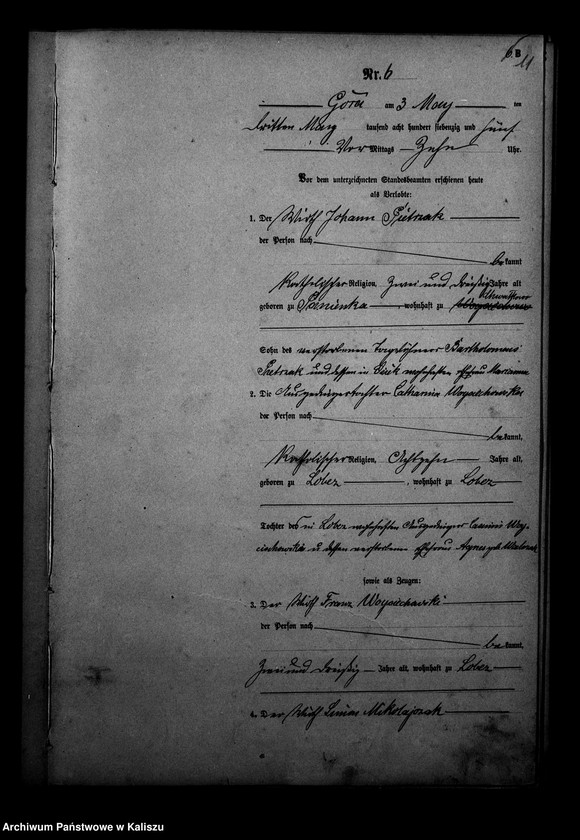 B
11
Nr. 6
Góra am 3 May ten
dritten May tausend acht hundert siebenzig und fünf
Vor Mittags Zehn Uhr.
Vor dem unterzeichneten Standesbeamten erschienen heute
als Verlobte:
1. Der Wirth Johann Pietrzak
der Person nach
bekannt
Katholischer Religion, Zwei und dreißig Jahre alt
geboren zu wohnhaft zu
Sohn des verstorbenen Tagelöhners Bartholomeus
Pietrzak und dessen in wohnhaften Ehefrau Marianna
2. Die Ausgedingertochter Catharina Woyciechowska
der Person nach
bekannt,
Katholischer Religion, Achtzehn Jahre alt,
geboren zu Lobez, wohnhaft zu Lobez
Tochter des in Lobez wohnhaften Ausgedinger Casimir Woy-
ciechowski u dessen verstorbene Ehefrau Agnes geb
sowie als Zeugen:
3. Der Wirth Franz Woyciechowski
der Person nach
bekannt,
Zwei und dreißig Jahre alt, wohnhaft zu Lobez
4. Der Wirth Mikolajczak
Archiwum Państwowe w Kaliszu